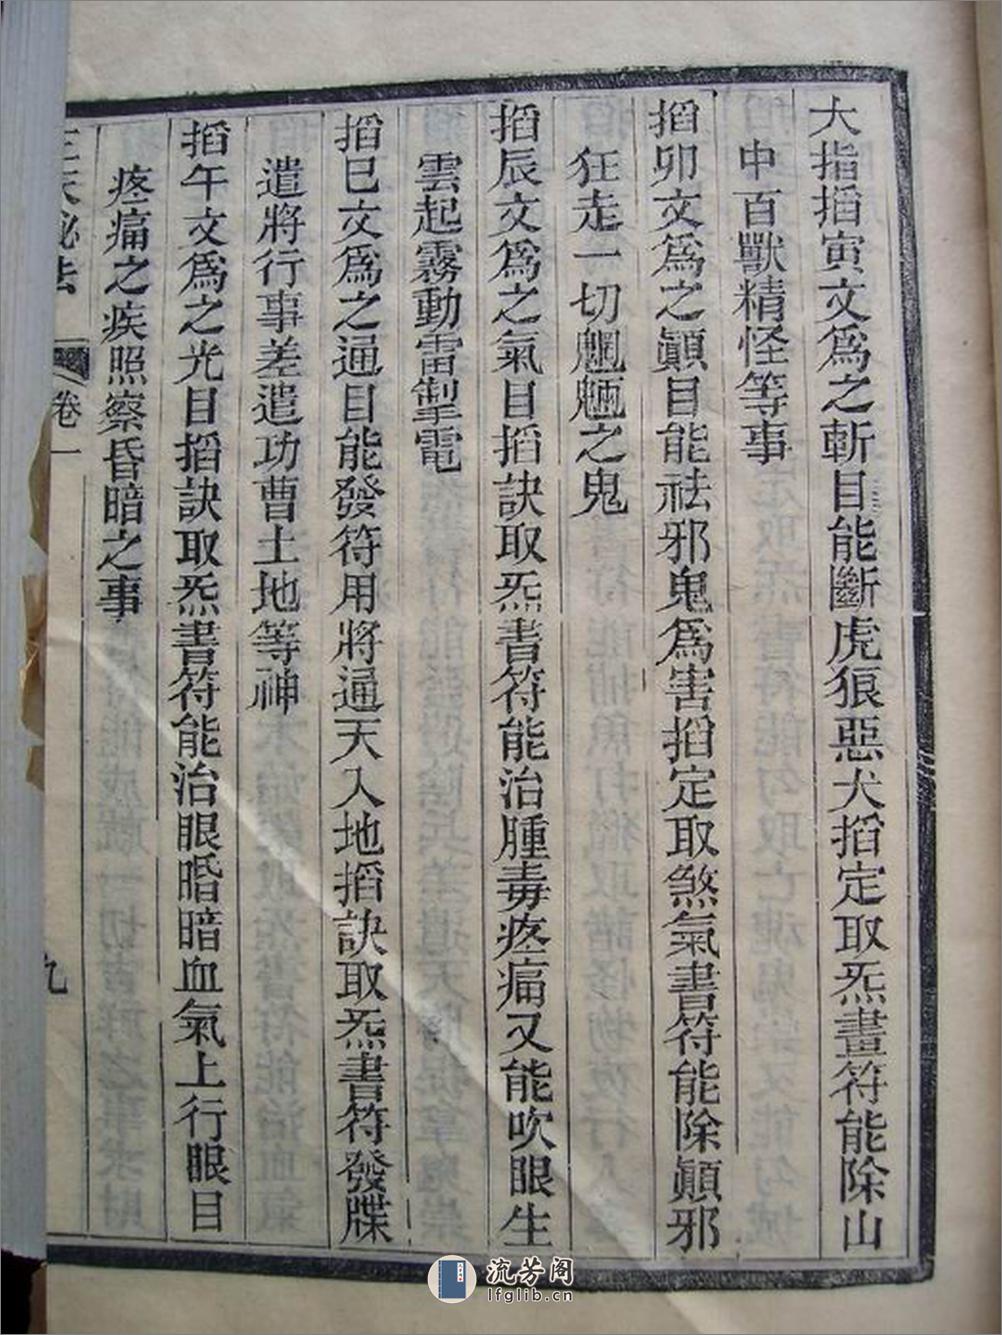 大指搯寅文爲之斬目能斷虎狼惡犬搯定取炁畫符能除山
中百獸精怪等事
搯卯文爲之顚目能祛邪鬼爲害搯定取煞氣書符能除顚邪
狂走一切魍魎之鬼
搯辰文爲之氣目搯訣取炁書符能治腫毒疼痛又能吹眼生
雲起霧動雷掣電
搯巳文爲之通目能發符用將通天入地搯訣取炁書符發牒
遣將行事差遣功曹土地等神
搯午文爲之光目搯訣取炁書符能治眼昏暗血氣上行眼目
疼痛之疾照察昏暗之事
卷一
九
流芳阁
lfglib.cn